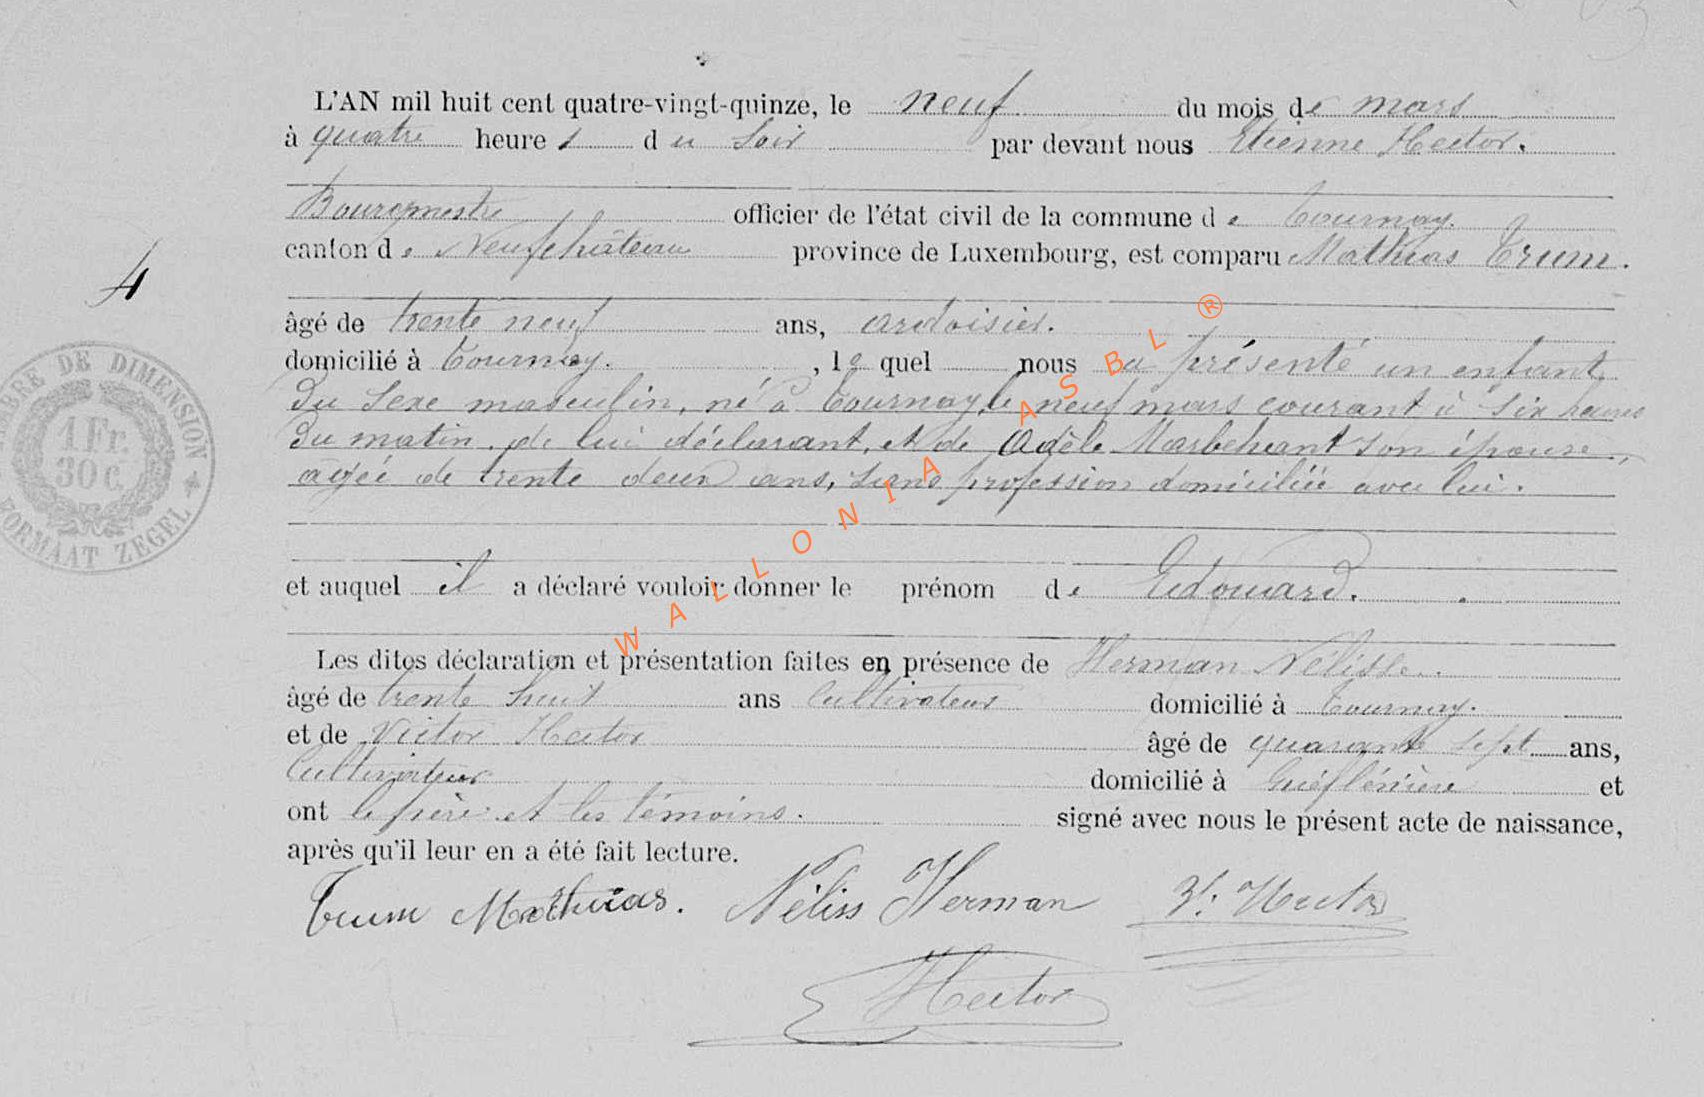 L'AN mil huit cent quatre-vingt-quinze, le neuf du mois de mars
à quatre heures du soir par devant nous Etienne Hector.
Bourgmestre officier de l'état civil de la commune de Tournay.
canton de Neufchâteau province de Luxembourg, est comparu Mathias Trum.
4
âgé de trente neuf ans, ardoisier.
domicilié à Tournay. , lequel nous a présenté un enfant
du sexe masculin, né à Tournay, le neuf mars courant à six heures
du matin, de lui déclarant, et de Adèle Marbehant son épouse,
agée de trente deux ans, sans profession domiciliée avec lui.
et auquel il a déclaré vouloir donner le prénom de Edouard.
Les dites déclaration et présentation faites en présence de Herman Nélisse.
âgé de trente huit ans cultivateur domicilié à Tournay.
et de Victor Hector âgé de quarante sept ans,
Cultivateur domicilié à et
ont le père et les témoins. signé avec nous le présent acte de naissance,
après qu'il leur en a été fait lecture.
Trum Mathias. Néliss Herman Hector
Hector
TIMBRE DE DIMENSION
1 Fr.
30 c.
FORMAAT ZEGEL
WALLONIA ASBL ®